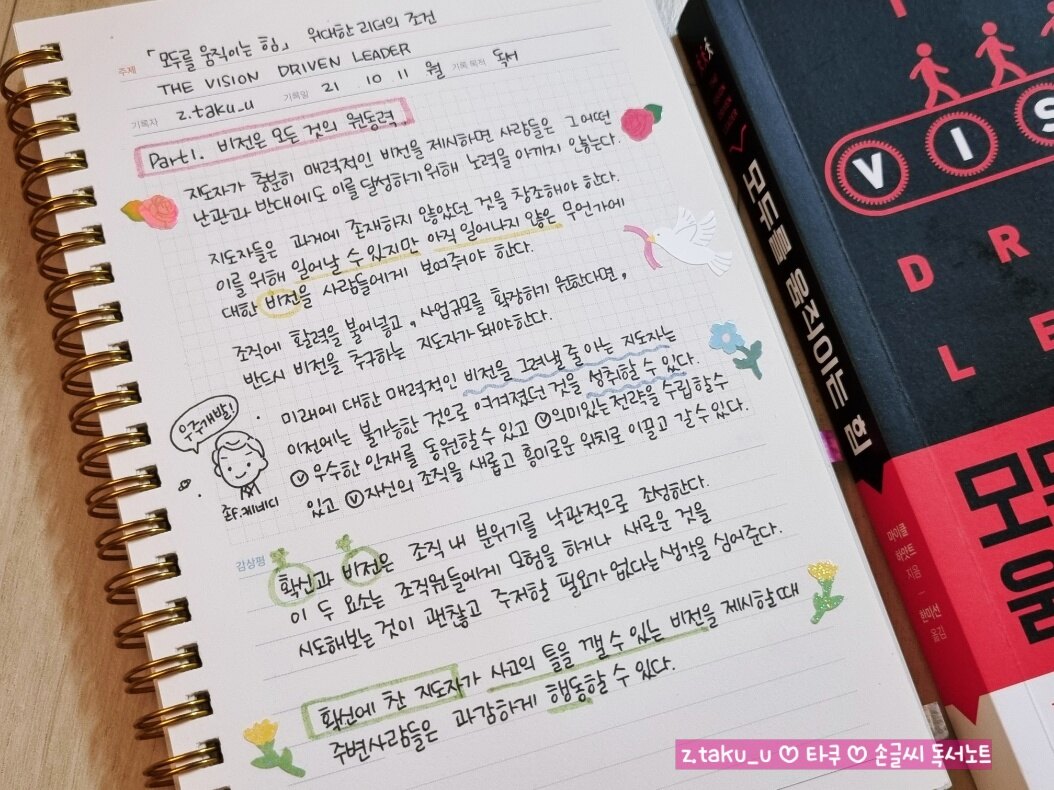 주제 「모두를 움직이는 힘」 위대한 리더의 조건
THE VISION DRIVEN LEADER
기록자 z.taku_u 기록일 21 10 11 월 기록 목적 독서
Part1. 비전은 모든 것의 원동력.
지도자가 충분히 매력적인 비전을 제시하면 사람들은 그 어떤
난관과 반대에도 이를 달성하기 위해 노력을 아끼지 않는다.
지도자들은 과거에 존재하지 않았던 것을 창조해야 한다.
이를 위해 일어날 수 있지만 아직 일어나지 않은 무언가에
대한 비전을 사람들에게 보여줘야 한다.
조직에 활력을 불어넣고, 사업규모를 확장하기 원한다면,
반드시 비전을 추구하는 지도자가 돼야한다.
미래에 대한 매력적인 비전을 그려낼 줄 아는 지도자는
이전에는 불가능한 것으로 여겨졌던 것을 성취할 수 있다.
ⓥ우수한 인재를 동원할 수 있고 ⓥ의미있는 전략을 수립할 수
있고 ⓥ자신의 조직을 새롭고 흥미로운 위치로 이끌고 갈 수 있다.
우주개발!
존F.케네디
감상평
확신과 비전은 조직 내 분위기를 낙관적으로 조성한다.
이 두 요소는 조직원들에게 모험을 하거나 새로운 것을
시도해보는 것이 괜찮고 주저할 필요가 없다는 생각을 심어준다.
확신에 찬 지도자가 사고의 틀을 깰 수 있는 비전을 제시할 때
주변사람들은 과감하게 행동할 수 있다.
모두를 움직이는 힘
마이클 하얏트 지음
한미선 옮김
V I S
D R
L E
모두
움
z.taku_u ♡ 타쿠 ♡ 손글씨 독서노트